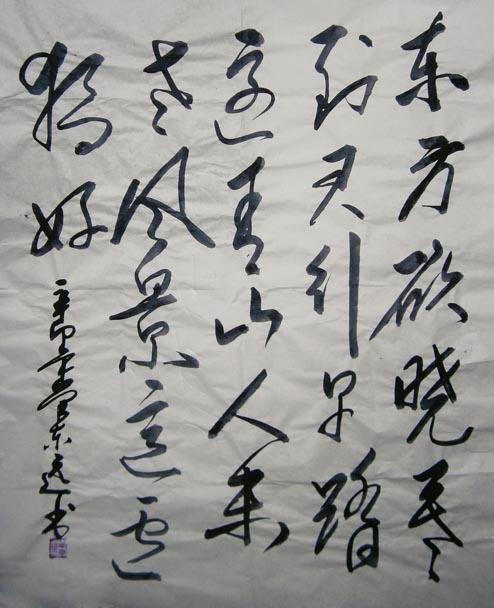 东方欲晓莫
到君行早踏
遍青山人未
老风景這边
独好
辛卯
书